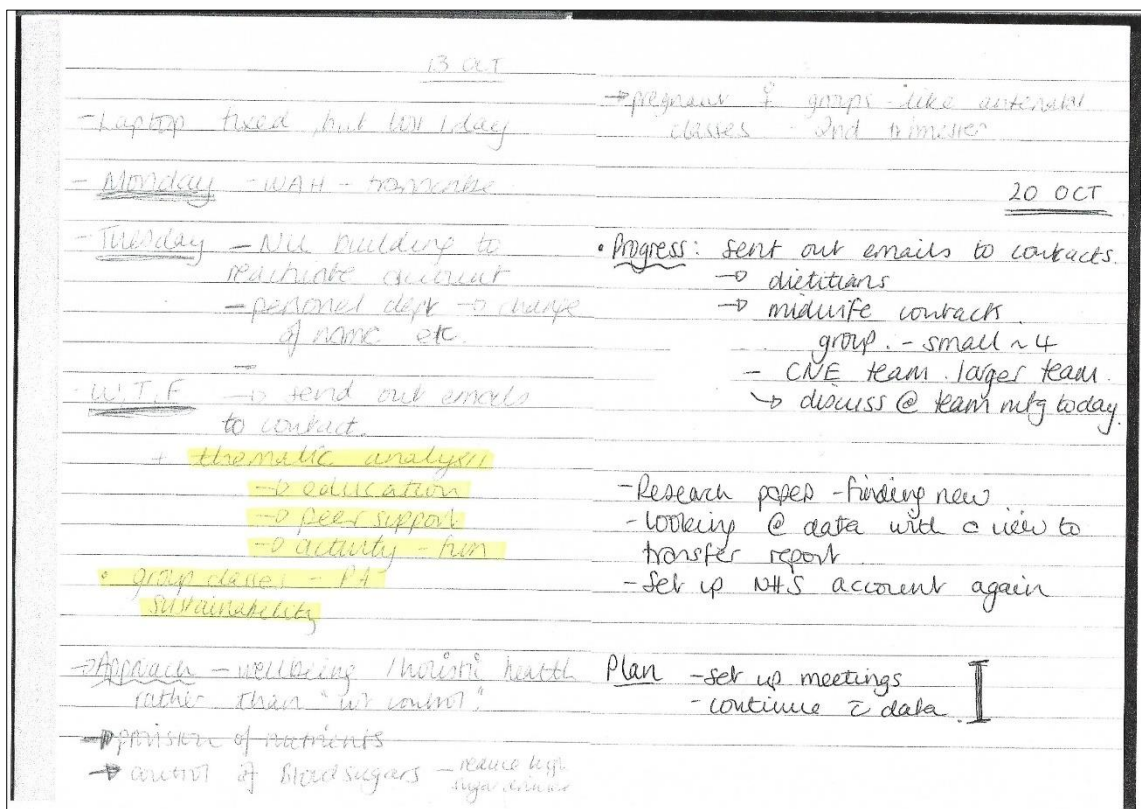 13 OCT
- Laptop fixed, but lost 1 day
- Monday - WAH - transcribe
- Tuesday - NU building to
reactivate account
- personel dept → change
of name etc.
W.T.F → send out emails
to contact.
+ thematic analysis
→ education
→ peer support
→ activity - fun
• group classes - PA
sustainability
→ Approach - wellbeing / holistic health
rather than "wt control".
→ provision of nutrients
→ control of Blood sugars - reduce high
sugar drinks
→ pregnant ♀ groups - like antenatal
classes - 2nd trimester
20 OCT
• Progress: sent out emails to contacts.
→ dietitians
→ midwife contacts.
group. - small ~ 4
- CNE team. larger team.
↳ discuss @ team mtg today.
- Research papes - finding new
- looking @ data with a view to
transfer report
- Set up NHS account again
Plan - set up meetings
- continue c̄ data.